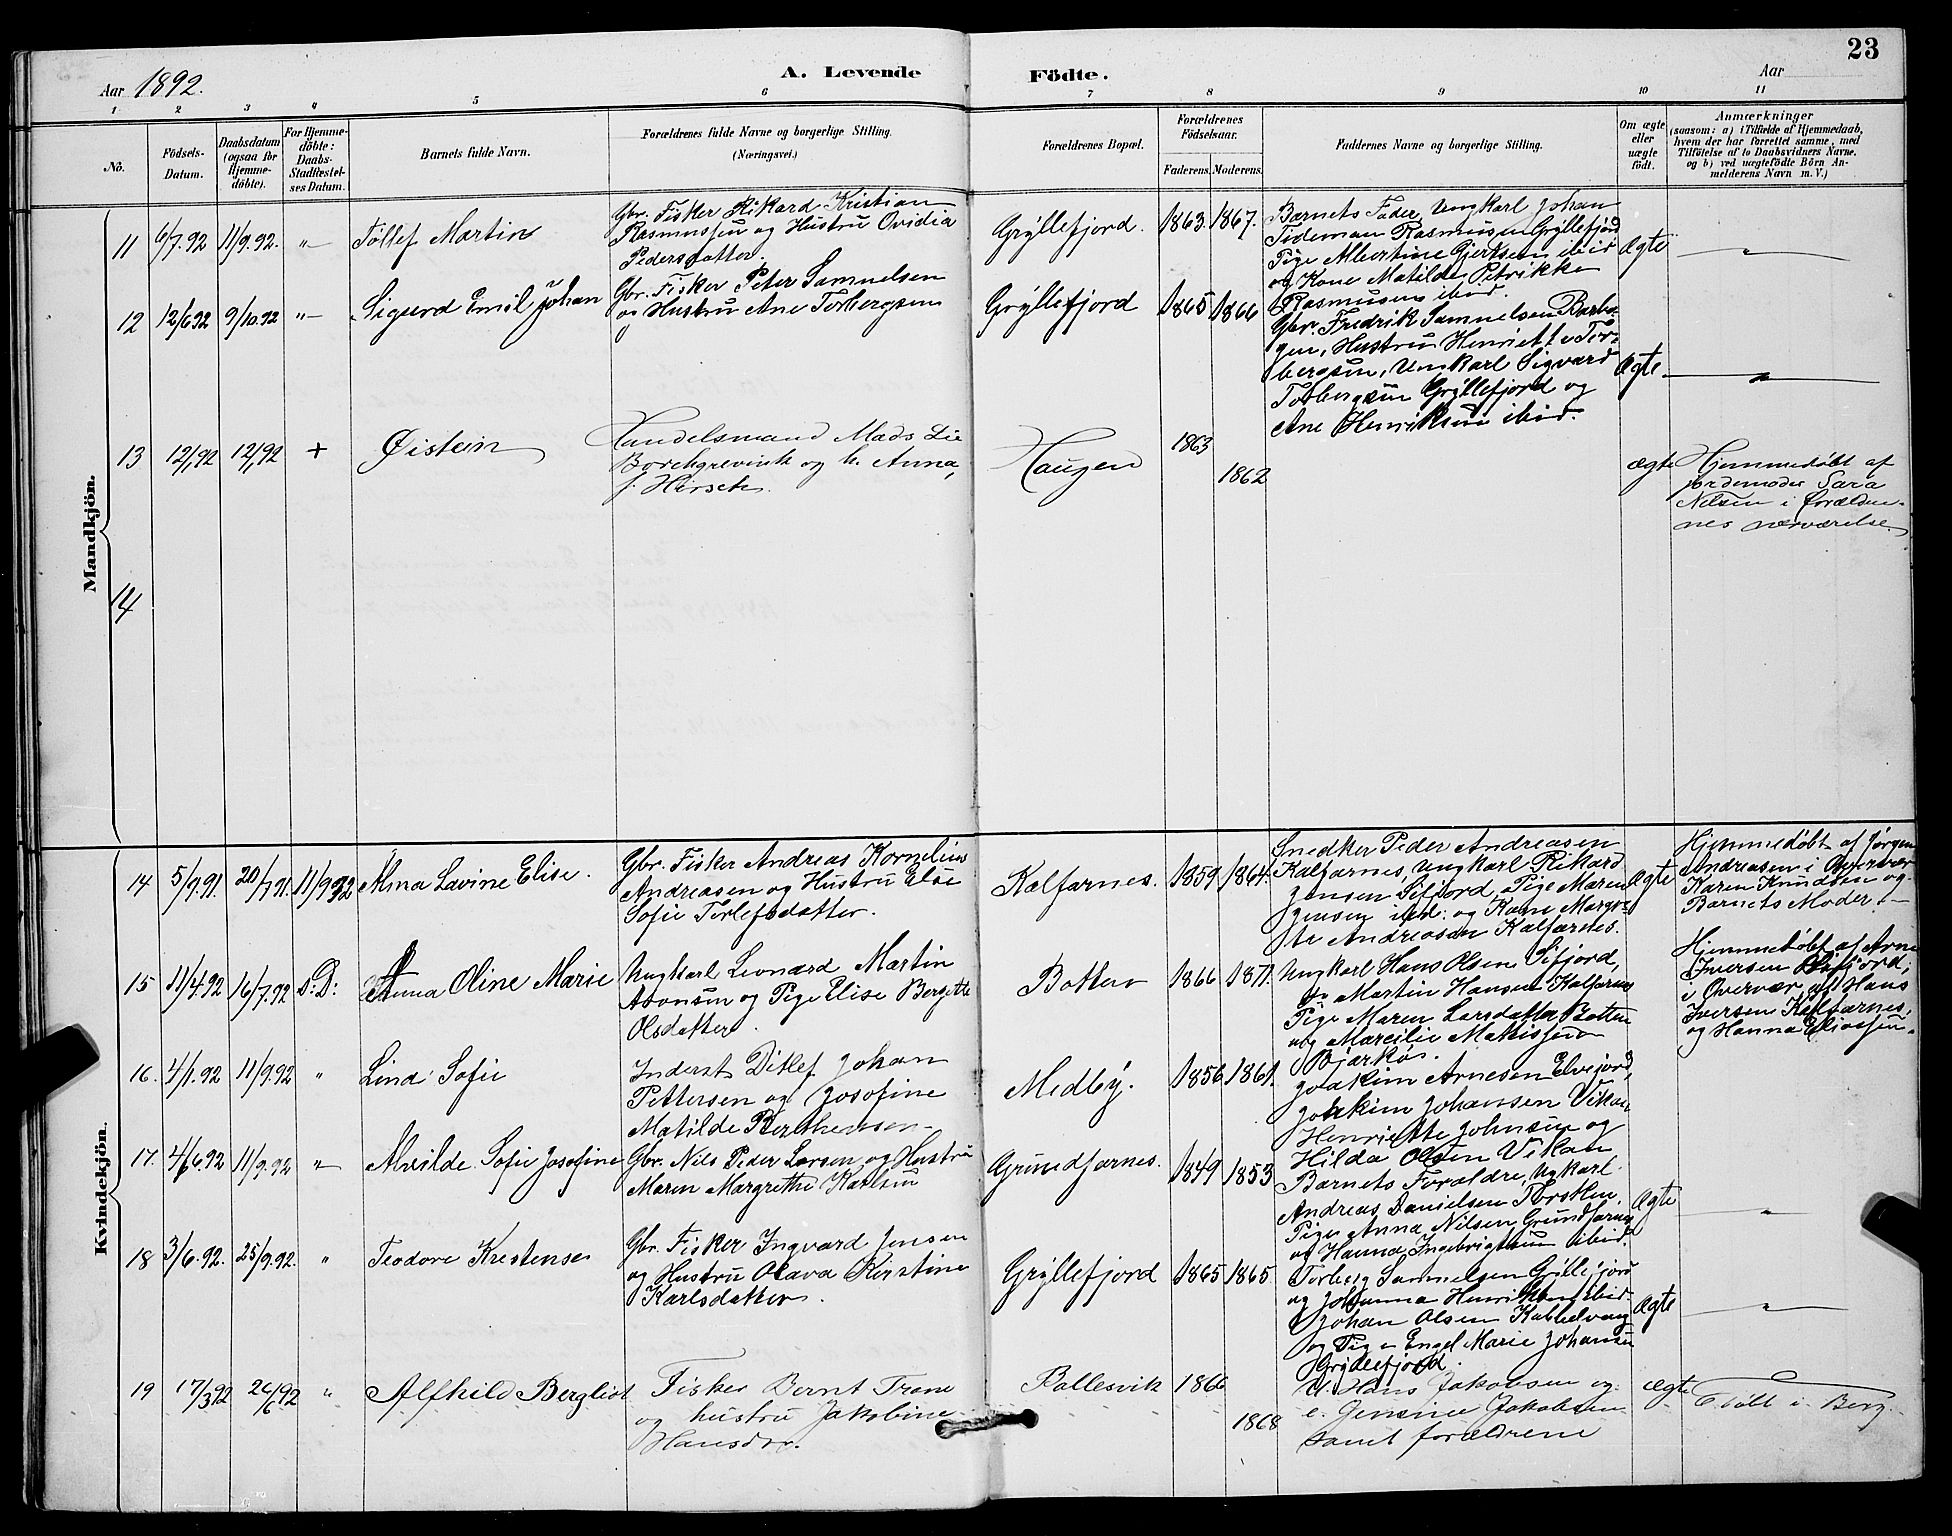 23
Aar 1892.
A. Levende Födte.
Aar
1 2 3 4 5 6 7 8 9 10 11
No.
Födsels-Datum.
Daabsdatum (ogsaa for Hjemme-döbte).
For Hjemme-döbte: Daabs-Stadfæstel-ses Datum.
Barnets fulde Navn.
Forældrenes fulde Navne og borgerlige Stilling. (Næringsvei.)
Forældrenes Bopæl.
Forældrenes Födselsaar.
Faderens. Moderens.
Faddernes Navne og borgerlige Stilling.
Om ægte eller uægte födt.
Anmærkninger
(saasom: a) i Tilfælde af Hjemmedaab,
hvem der har forrettet samme, med
Tilföielse af to Daabsvidners Navne,
og b) ved uægtefödte Börn An-
melderens Navn m. V.)
Mandkjön.
11 6/7.92 11/9.92. "- Tøllef Martin
Gbr. Fisker Rikard Kristian
Rasmussen og Hustru Ovidia
Pedersdatter.
Grÿllefjord. 1863. 1867.
Barnets Fader, Ungkarl Johan
Tideman Rasmussen Grÿllefjord
Pige Albertine Gjertsen ibid
og Kone Matilde Petrikke
Rasmusen ibid.
Ægte "
12 12/6 92 9/10.92 "- Sigurd Emil Johan
Gbr. Fisker Peter Samuelsen
og Hustru Ane Torbergsen
Grÿllefjord 1865 1866
Gbr. Fredrik Samuelsen
gen, Hustru Henriette Tor-
bergsen, Ungkarl Sigvard
Torbergsen Grÿllefjord og
Ane Henriksen ibid.
Ægte "
13 12/1 92 12/1 92 + Øistein
Handelsmand Mads Lie
Borchgrevink og h. Anna,
f. Hirsch.
Haugen 1863
1862
ægte
Hjemmedøbt af
jordemoder Sara
Nilsen i forældre-
nes nærværelse.
14
Kvindekjön.
14 5/7.91. 20/7 91. 11/9 92 Alma Lavine Elise.
Gbr. Fisker Andreas Kornelius
Andreasen og Hustru Else
Sofie Torlefsdatter.
Kalfarnes. 1859 1864.
Snedker Peder Andreasen
Kalfarnes, Ungkarl Rikard
Jensen Sifjord, Pige Maren
Jensen ibd: og Kone Margre
te Andreasen Kalfarnes.
Ægte
Hjemmedøbt af Jørgen
Andreasen i Overvær
Karen Knudsen og
Barnets Moder.-
15 11/4.92 16/7.92 D:D: Anna Oline Marie
Ungkarl Leonard Martin
Aronsen og Pige Elise Bergette
Olsdatter.
Botten 1866 1871.
Ungkarl Hans Olsen Sifjord,
do Martin Hansen Kalfarnes
Pige Maren Larsdatter Botten
og Marcilie Mathissen
Bjarkøi.
Hjemmedøbt af Arne
Iversen Sifjord,
i Overvær af Hans
Iversen Kalfarnes,
og Hanna Eliassen.
16. 4/1.92 11/9.92 " Lind Sofie
Inderst Ditlef Johan
Pettersen og Josofine
Matilde Berthensen
Medbÿ. 1856 1861.
Joakim Arnesen Elvejord,
Joakim Johansen Vikan,
Henriette Johnsen og
Hilda Olsen Vikan
17. 4/6.92 11/9.92 "- Alvilde Sofie Josofine
Gbr. Nils Peder Larsen og Hustru
Maren Margrethe Karlsen
Grundfarnes. 1849 1853
Barnets Forældre, Ugkarl
Andreas Danielsen Torsken,
Pige Anna Nilsen Grundfarnes
og Hanna Ingebrigtsen ibid.
Ægte "
18 3/6.92. 25/9.92. " Teodore Krestense
Gbr. Fisker Ingvard Jensen
og Hustru Olava Kirstine
Karlsdatter.
Grÿllefjord 1865 1865.
Torberg Samuelsen Grÿllefjord
og Johanna Henriksen ibid.
Johan Olsen Kabbelvaag
og Pige Engel Marie Johansen
Grÿllefjord.
Ægte "
19 17/3 92 26/6 92 " Alfhild Bergliot
Fisker Bernt Trane
og hustru Jakobine
Hansdr.
Ballesvik 1866
1868
Hans Jakobsen og
e. Jensine Jakobsen
samt forældrene
ægte
døbt i Berg.